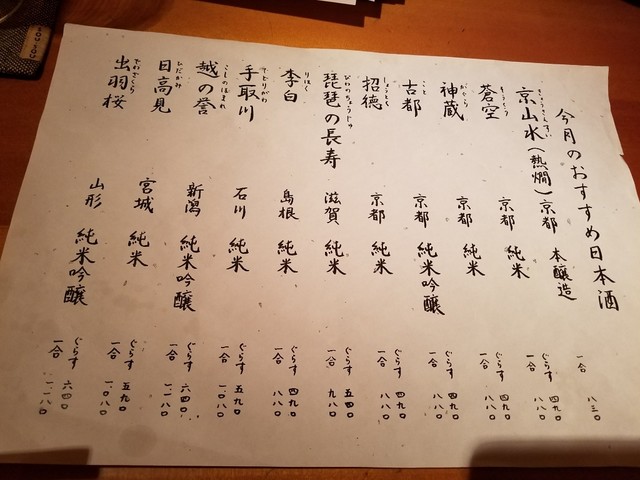 今月のおすすめ日本酒
きょうさんすい
京山水(熱燗) 京都 本醸造 一合 八三〇
そうくう
蒼空 京都 純米 ぐらす 四九〇
一合 八八〇
かぐら
神蔵 京都 純米 ぐらす 四九〇
一合 八八〇
こと
古都 京都 純米吟醸 ぐらす 四九〇
一合 八八〇
しょうとく
招徳 京都 純米 ぐらす 四九〇
一合 八八〇
びわのちょうじゅ
琵琶の長寿 滋賀 純米 ぐらす 五四〇
一合 九八〇
りはく
李白 島根 純米 ぐらす 四九〇
一合 八八〇
てどりがわ
手取川 石川 純米 ぐらす 五九〇
一合 一〇八〇
こしのほまれ
越の誉 新潟 純米吟醸 ぐらす 六四〇
一合 一一八〇
ひだかみ
日高見 宮城 純米 ぐらす 五九〇
一合 一〇八〇
でわざくら
出羽桜 山形 純米吟醸 ぐらす 六四〇
一合 一一八〇
SOU・SOU